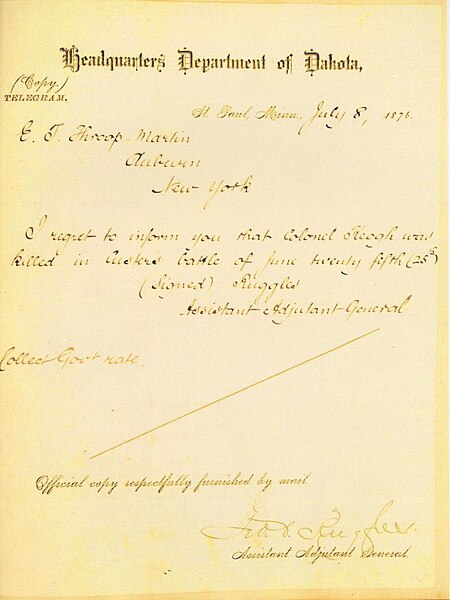 Headquarters Department of Dakota,
(Copy.)
TELEGRAM.
St. Paul, Minn., July 8, 1876.
E. T. Throop Martin
Auburn
New York
I regret to inform you that Colonel Keogh was
killed in Custers battle of June twenty fifth (25th)
(Signed) Ruggles
Assistant Adjutant General
Collect Govt rate
Official copy respectfully furnished by mail
Ruggles
Assistant Adjutant General